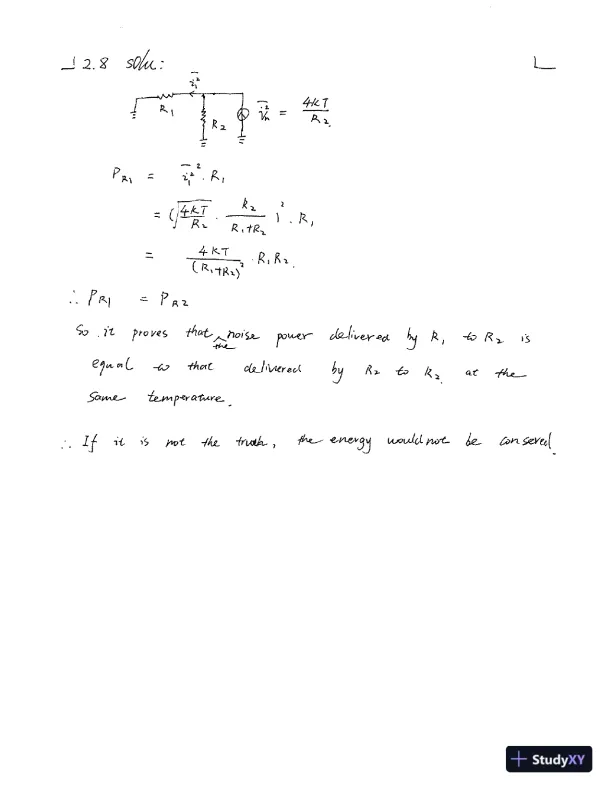 2.8 solu:
i₁²
R₁
R₂
iₙ² = 4kT / R₂
P_R₁ = i₁² · R₁
= (√(4kT / R₂) · R₂ / (R₁+R₂))² · R₁
= 4kT / (R₁+R₂)² · R₁R₂.
∴ P_R1 = P_R2
So it proves that the noise power delivered by R₁ to R₂ is
equal to that delivered by R₂ to R₂ at the
same temperature.
∴ If it is not the truth, the energy would not be conserved.
StudyXY